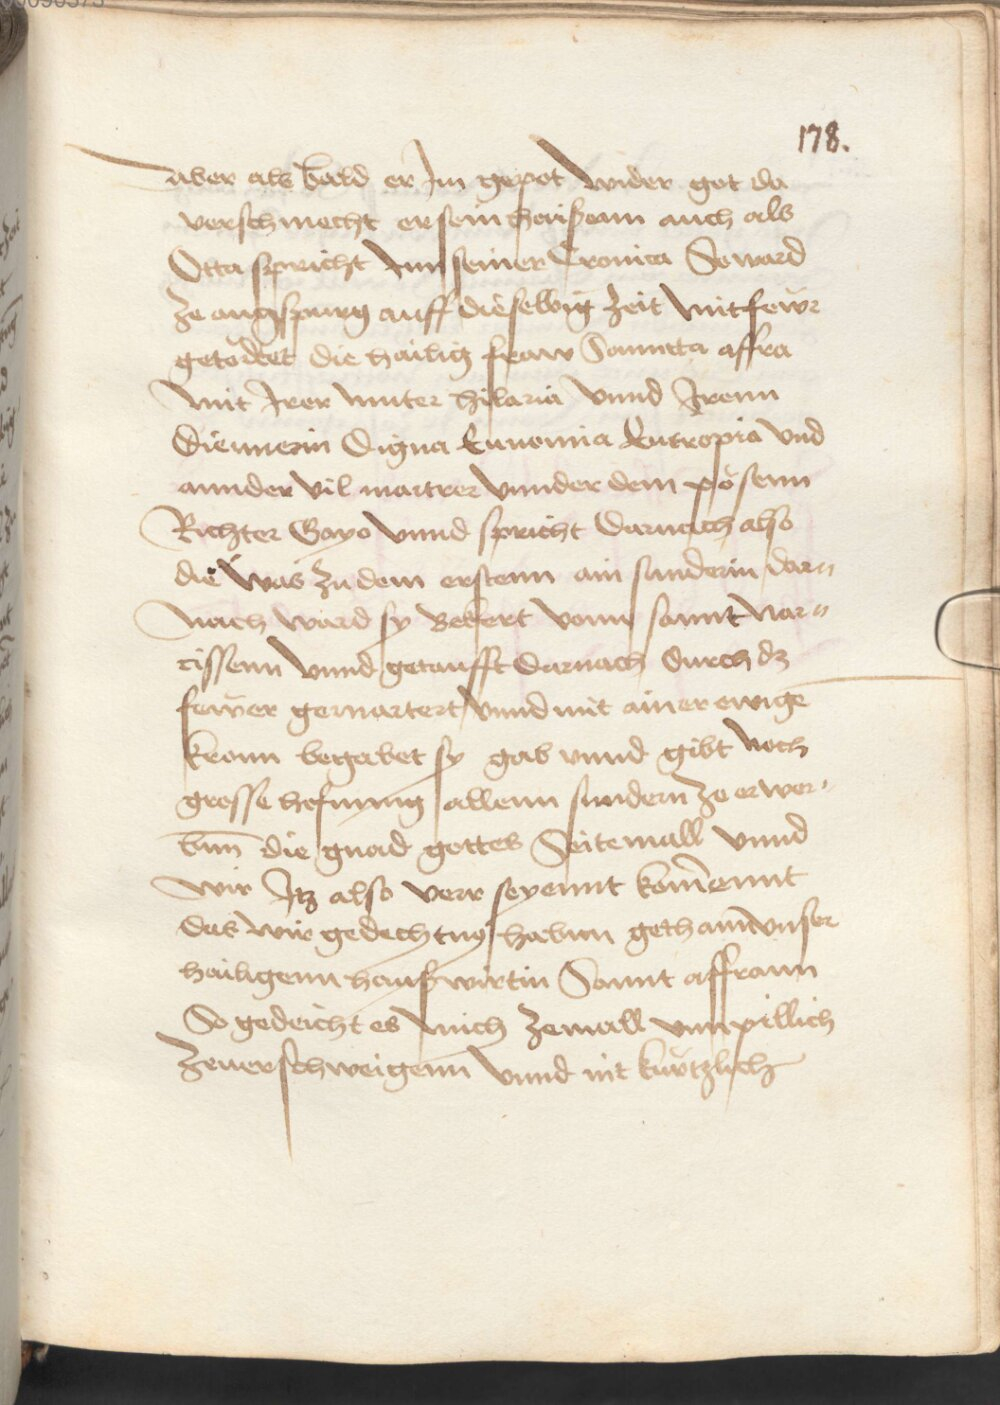 178.
aber als bald er Im gepot wider got da
verschmecht er sein haissenn auch als
Otta spricht Inn seiner Cronica So ward
ze augspurg auff dieselbig zeit mit fewr
getödtet die hailig fraw Sanntta affra
mit Irer muter hilaria vnnd Irenn
Diennerin Digna Eunomia Eutropia vnd
annder vil martrer vnnder dem pösenn
Richter Gayo vnnd spricht darnach also
die was zu dem erstenn ain sunderin dar„
nach ward sy bekert vonn sannt nar„
cissenn vnnd getaufft darnach durch dz
fewer gemartert vnnd mit ainer ewige
kronn begabet sy gab vnnd gibt noch
grosse hofnung allenn sundern ze erwer„
bnn die gnad gottes Seitemall vnnd
wir Itz also verr seyennt komennt
das wir gedechtnus habnn gethann vnser
hailigenn haußwirtin Sannt affrann
So gedeicht es mich zemall vnnpillich
zeuerschweigenn vnnd nit kurtzlich